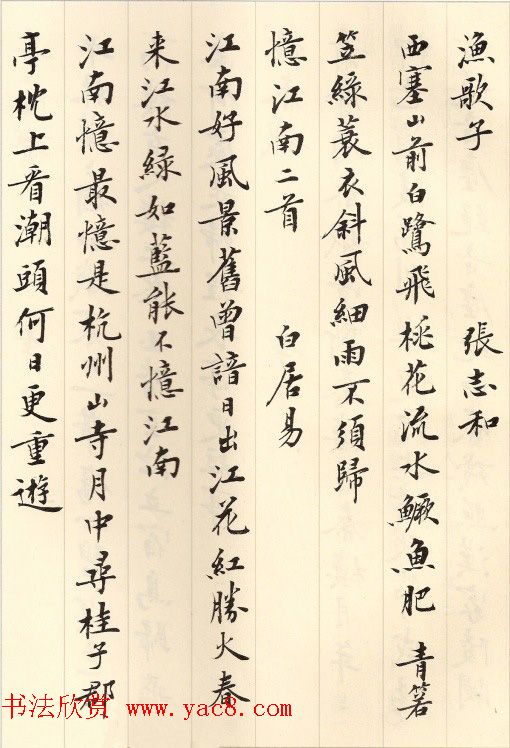 漁歌子 張志和
西塞山前白鷺飛桃花流水鱖魚肥 青箬
笠綠蓑衣斜風細雨不須歸
憶江南二首 白居易
江南好風景舊曾諳日出江花紅勝火春
来江水綠如藍能不憶江南
江南憶最憶是杭州山寺月中尋桂子郡
亭枕上看潮頭何日更重遊
书法欣赏 www.yac8.com